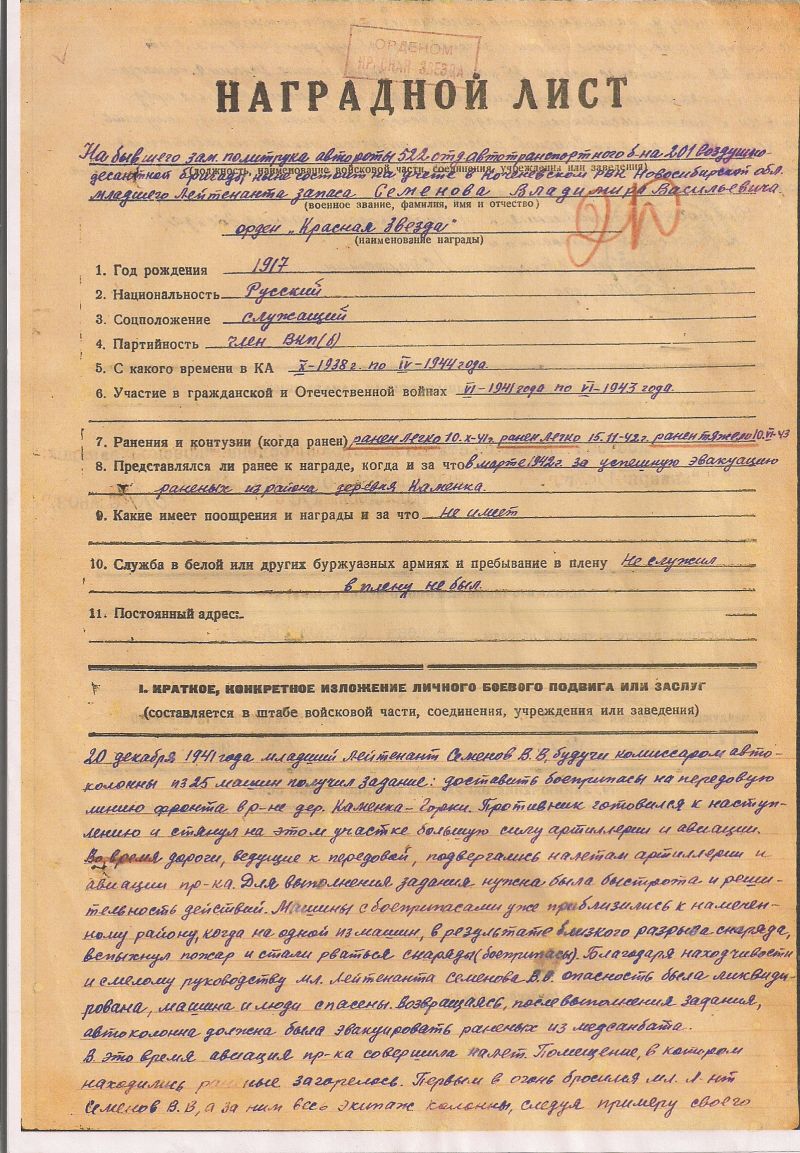 ОРДЕНОМ
КРАСНАЯ ЗВЕЗДА
НАГРАДНОЙ ЛИСТ
На бывшего зам. политрука автороты 522 отд автотранспортного б-на 201 воздушно-
(должность, наименование войсковой части, соединения, учреждения или заведения)
десантной бригады ныне состоит на учете в Коченевском РВК Новосибирской обл.
младшего Лейтенанта запаса Семенова Владимира Васильевича
(военное звание, фамилия, имя и отчество)
орден „Красная Звезда"
(наименование награды)
1. Год рождения 1917
2. Национальность Русский
3. Соцположение служащий
4. Партийность член ВКП(б)
5. С какого времени в КА X-1938 г. по IV-1944 года.
6. Участие в гражданской и Отечественной войнах VI-1941 года по VI-1943 года.
7. Ранения и контузии (когда ранен) ранен легко 10.X-41г. ранен легко 15.11-42г. ранен тяжело 10.VI-43
8. Представлялся ли ранее к награде, когда и за что в марте 1942 г. за успешную эвакуацию
раненых из района деревья Каменка.
9. Какие имеет поощрения и награды и за что Не имеет
10. Служба в белой или других буржуазных армиях и пребывание в плену Не служил
в плену не был.
11. Постоянный адрес:
I. КРАТКОЕ, КОНКРЕТНОЕ ИЗЛОЖЕНИЕ ЛИЧНОГО БОЕВОГО ПОДВИГА ИЛИ ЗАСЛУГ
(составляется в штабе войсковой части, соединения, учреждения или заведения)
20 декабря 1941 года младший Лейтенант Семенов В.В, будучи комиссаром авто-
колонны из 25 машин получил задание: доставить боеприпасы на передовую
линию фронта в р-не дер. Каменка-Горки. Противник готовился к наступ-
лению и стянул на этом участке большую силу артиллерии и авиации.
Во время дороги, ведущие к передовой, подвергались налетам артиллерии и
авиации пр-ка. Для выполнения задания нужна была быстрота и реши-
тельность действий. Машины с боеприпасами уже приблизились к намечен-
ному району, когда на одной из машин, в результате близкого разрыва снаряда,
вспыхнул пожар и стали рваться снаряды (боеприпасы). Благодаря находчивости
и смелому руководству мл. Лейтенанта Семенова В.В. опасность была ликвиди
рована, машина и люди спасены. Возвращаясь, после выполнения задания,
автоколонна должна была эвакуировать раненых из медсанбата.
В это время авиация пр-ка совершила налет. Помещение, в котором
находились раненые загорелось. Первым в огонь бросился мл. Л-нт
Семенов В.В, а за ним весь экипаж колонны, следуя примеру своего